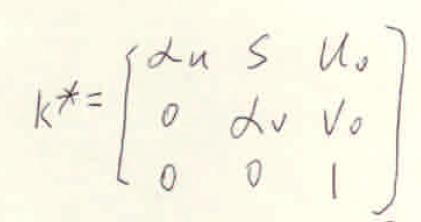 αu S U₀
K*= 0 αv V₀
0 0 1